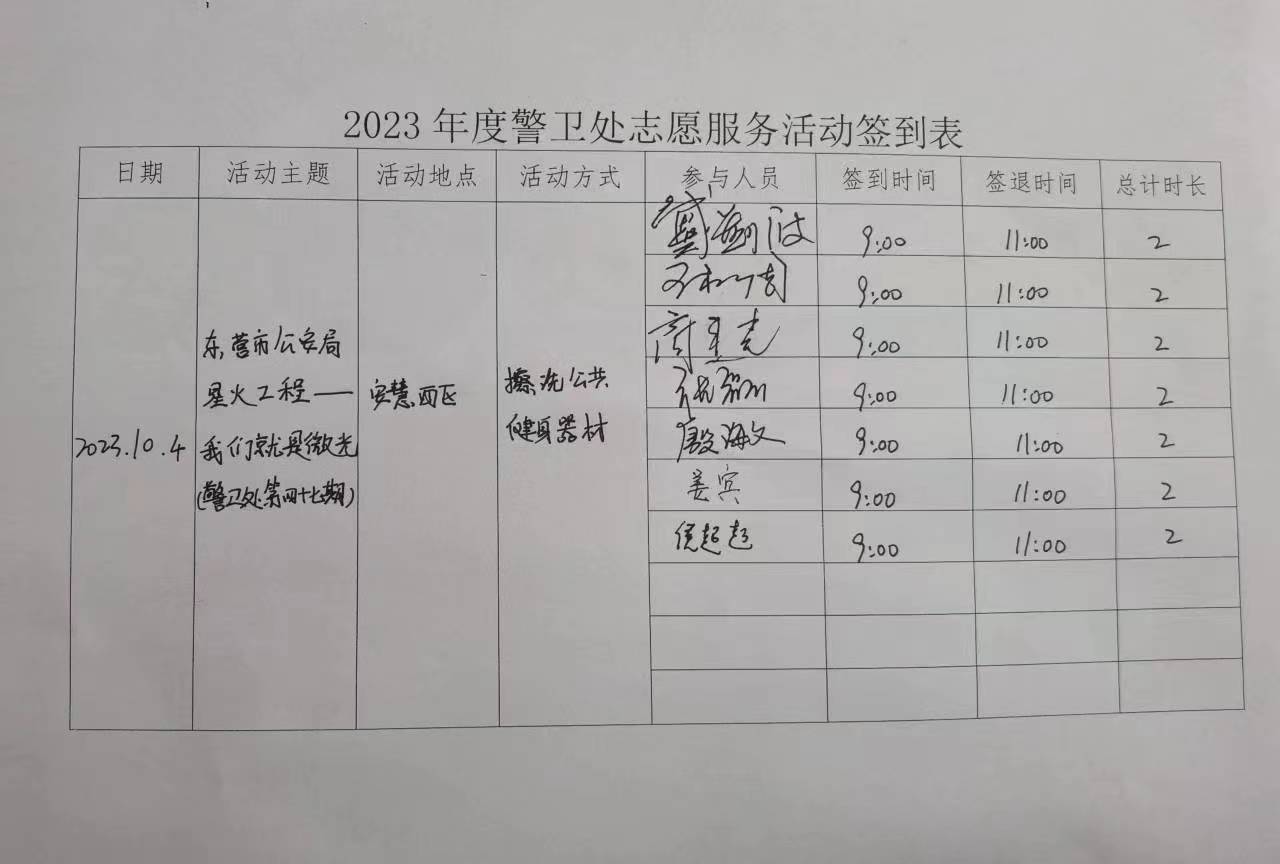 2023年度警卫处志愿服务活动签到表
日期 活动主题 活动地点 活动方式 参与人员 签到时间 签退时间 总计时长
2023.10.4
东营市公安局
星火工程——
我们就是微光
(警卫处第四十七期)
安慧西区
擦洗公共
健身器材
9:00 11:00 2
9:00 11:00 2
9:00 11:00 2
9:00 11:00 2
殷海文 9:00 11:00 2
姜宾 9:00 11:00 2
侯超超 9:00 11:00 2